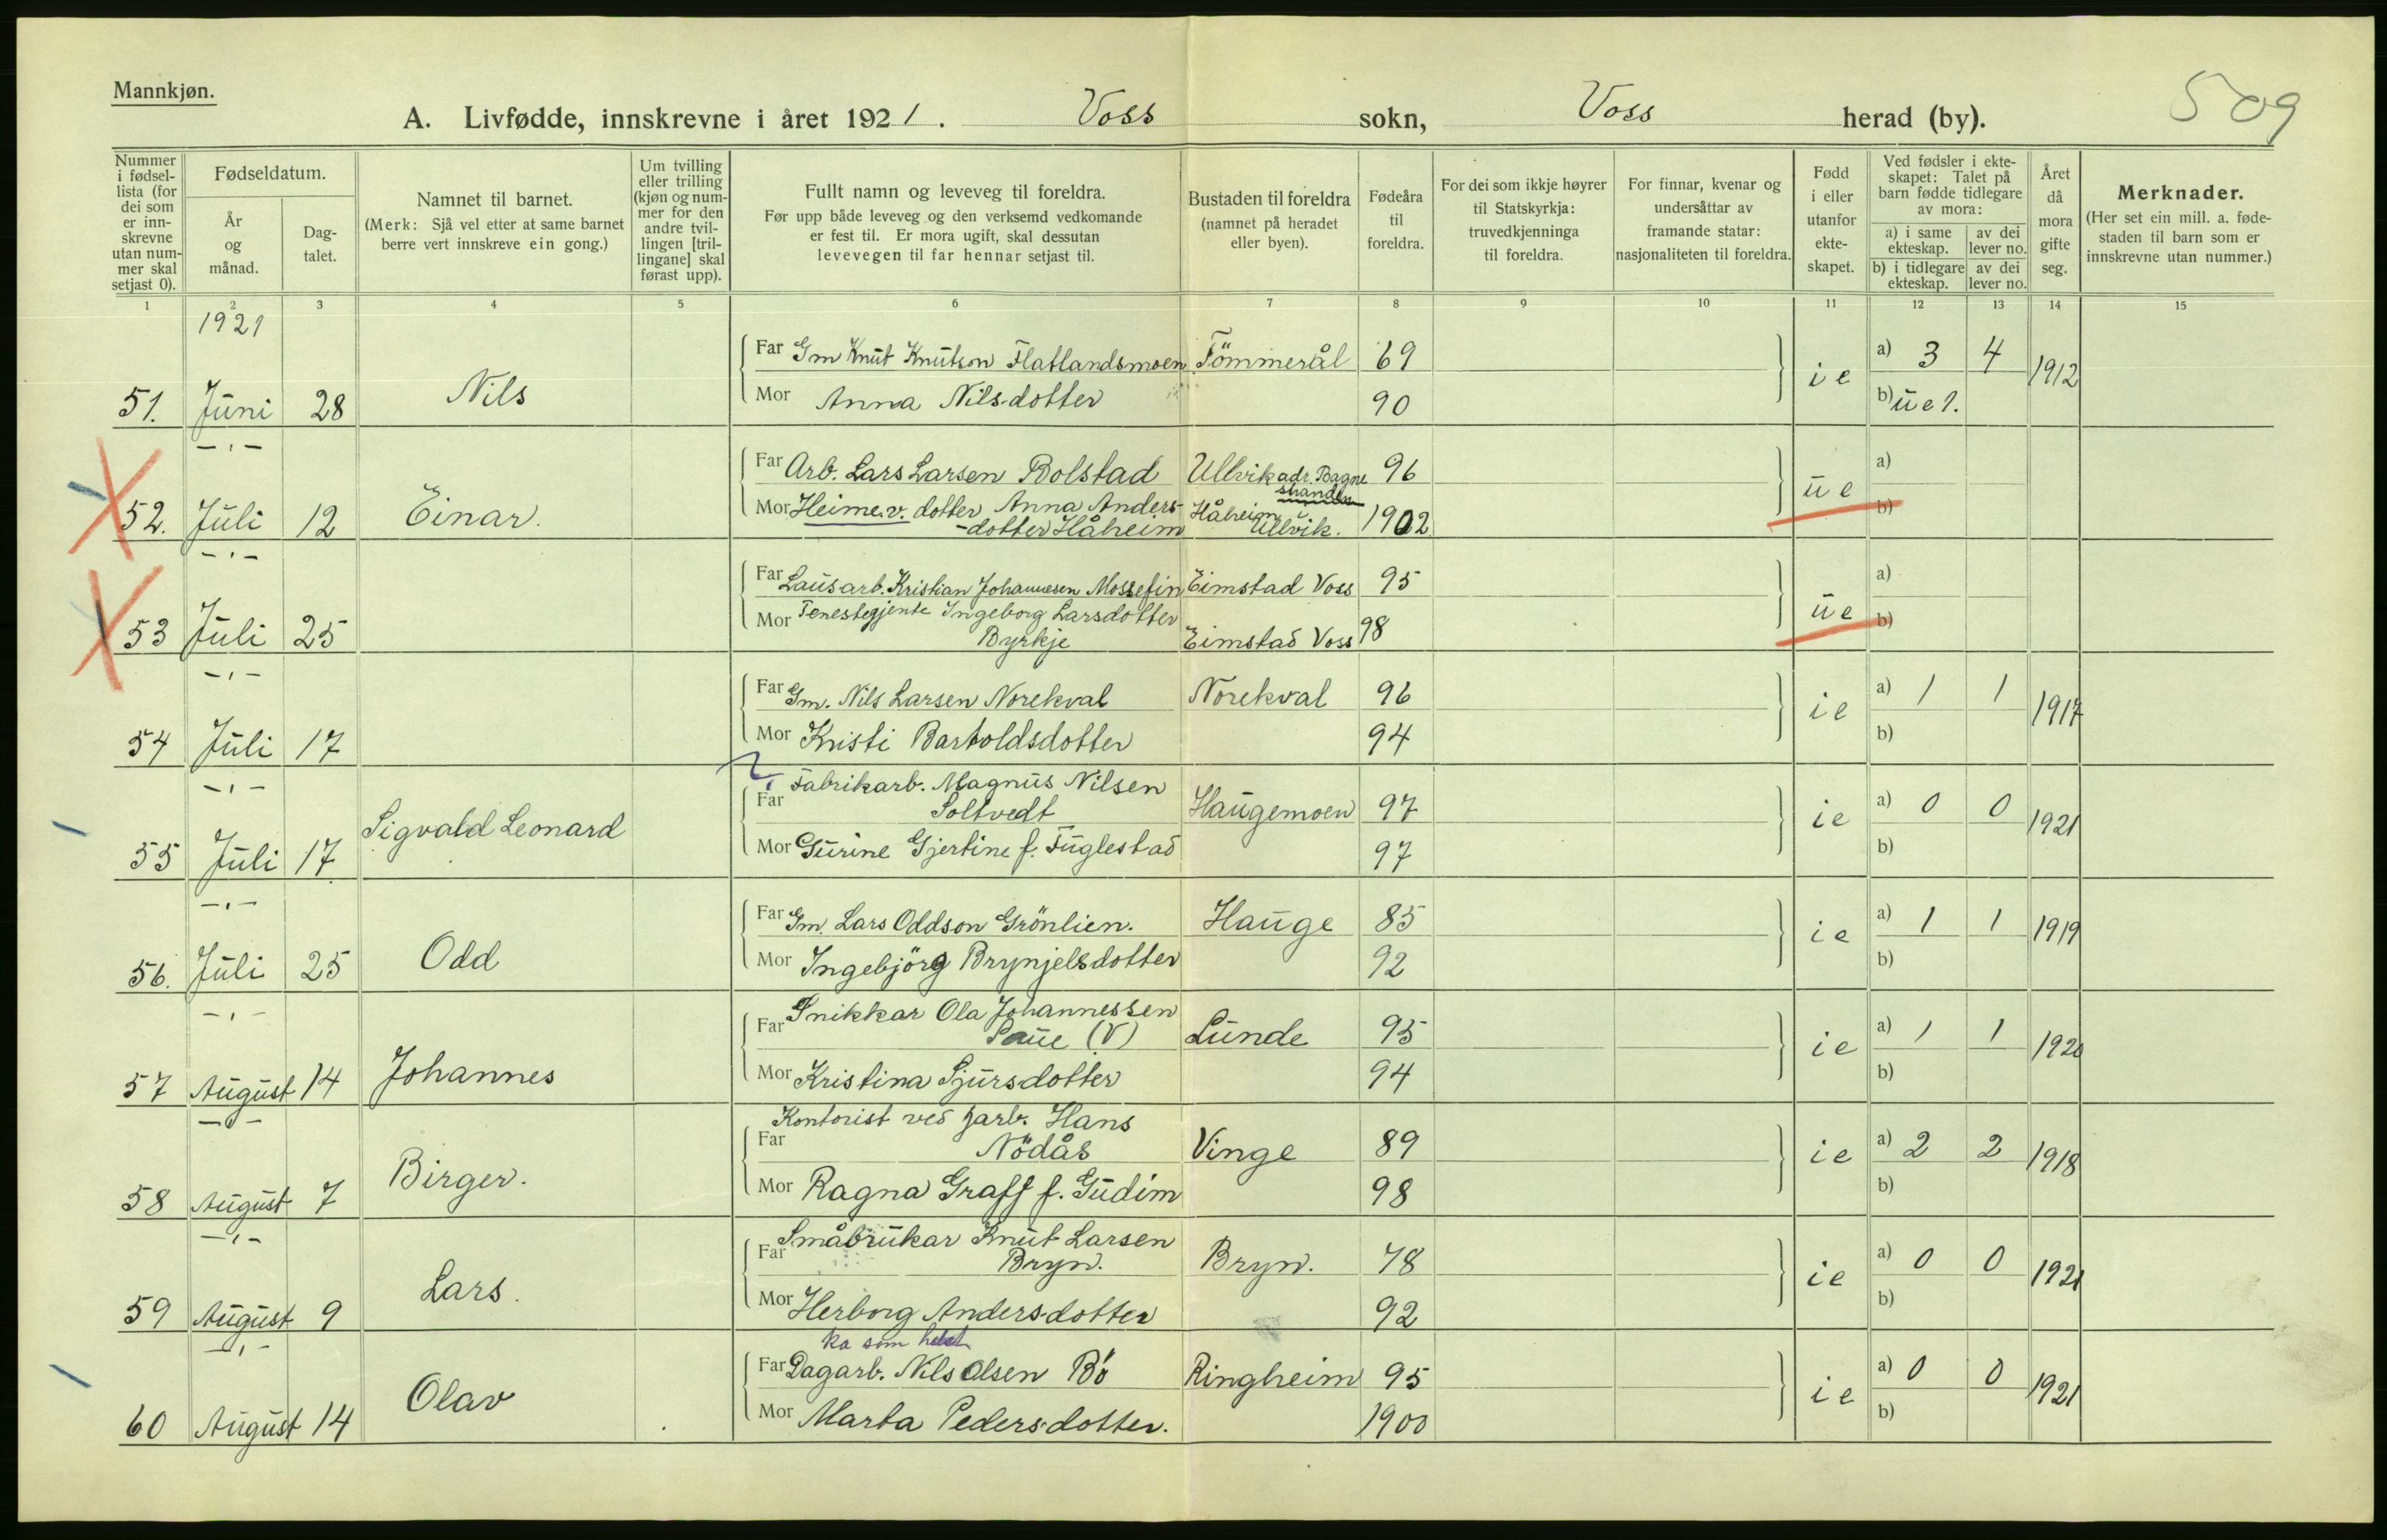 Mannkjøn.
A. Livfødde, innskrevne i året 1921. Voss sokn, Voss herad (by).
509
Nummer i fødsel-lista (for dei som er inn-skrevne utan num-mer skal setjast 0).
Fødseldatum.
År og månad.
Dag-talet.
Namnet til barnet.
(Merk: Sjå vel etter at same barnet berre vert innskreve ein gong.)
Um tvilling eller trilling (kjøn og num-mer for den andre tvil-lingen [tril-lingane] skal førast upp).
Fullt namn og leveveg til foreldra.
Før upp både leveveg og den verksemd vedkomande er fest til. Er mora ugift, skal dessutan levevegen til far hennar setjast til.
Bustaden til foreldra (namnet på heradet eller byen).
Fødeåra til foreldra.
For dei som ikkje høyrer til Statskyrkja: truvedkjenninga til foreldra.
For finnar, kvenar og undersåttar av framande statar: nasjonaliteten til foreldra.
Fødd i eller utanfor ekte-skapet.
Ved fødsler i ekte-skapet: Talet på barn fødde tidlegare av mora:
a) i same ekteskap. av dei lever no.
b) i tidlegare ekteskap. av dei lever no.
Året då mora gifte seg.
Merknader.
(Her set ein mill. a. føde-staden til barn som er innskrevne utan nummer.)
1 2 3 4 5 6 7 8 9 10 11 12 13 14 15
1921
Far Gm Knut Knutson Flatlandsmoen Tömmerål 69 a) 3 4
51. Juni 28 Nils i e 1912
Mor Anna Nils-dotter 90 b) ue 1.
Far Arb. Lars Larsen Bolstad Ullvik adr. Bagne stranden 96 a)
52. Juli 12 Einar. u e
Mor Heime.v. dotter Anna Anders-dotter Håheim Håheim Ullvik. 1902 b)
Far Lausarb. Kristian Johannesen Mossefin Eimstad Voss 95 a)
53 Juli 25 u e
Mor Tenestegjente Ingeborg Larsdotter Byrkje Eimstad Voss 98 b)
Far Gm. Nils Larsen Norekval Norekval 96 a) 1 1
54 Juli 17 i e 1917
Mor Kristi Bartoldsdotter 94 b)
Far Fabrikarb. Magnus Nilsen Soltvedt Haugemoen 97 a) 0 0
55 Juli 17 Sigvald Leonard i e 1921
Mor Gurine Gjertine f. Fuglestad 97 b)
Far Gm. Lars Oddson Grönlien. Hauge 85 a) 1 1
56. Juli 25 Odd i e 1919
Mor Ingebjörg Brynjelsdotter 92 b)
Far Snikkar Ola Johannessen Saue (V) Lunde 95 a) 1 1
57 August 14 Johannes i e 1920
Mor Kristina Sjursdotter 94 b)
Far Kontorist ved jarb. Hans Nödås Vinge 89 a) 2 2
58 August 7 Birger. i e 1918
Mor Ragna Graff f. Gudim 98 b)
Far Småbrukar Knut Larsen Bryn. Bryn. 78 a) 0 0
59 August 9 Lars. i e 1921
Mor Herborg Anders-dotter 92 b)
ka som helst
Far Dagarb. Nils Olsen Bö Ringheim 95 a) 0 0
60 August 14 Olav i e 1921
Mor Marta Peders-dotter. 1900 b)